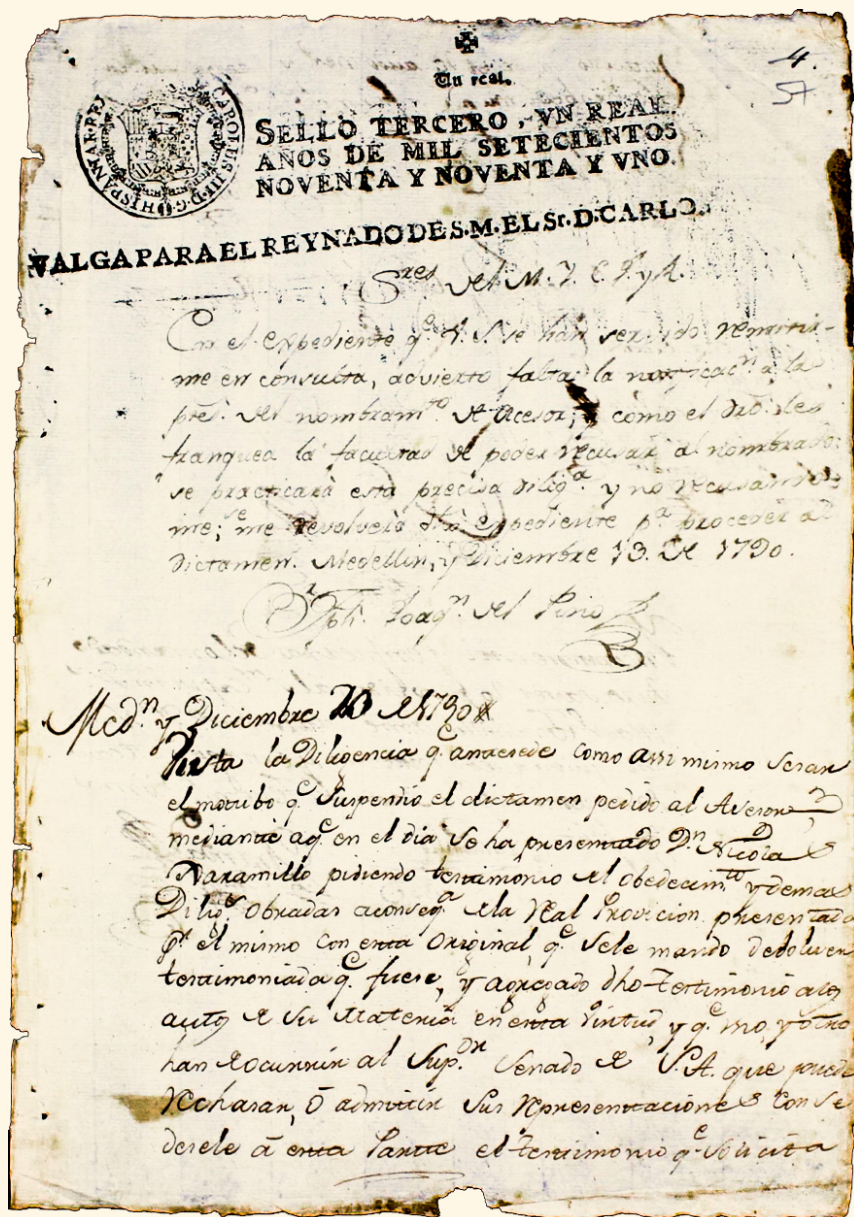 4.
57
Un real.
SELLO TERCERO, VN REAL
AÑOS DE MIL SETECIENTOS
NOVENTA Y NOVENTA Y VNO.
CAROLUS III D G HISPANIAR REX
VALGA PARA EL REYNADO DE S. M. EL Sr. D. CARLO.
Sres del M. Y. C. J. y R.
En el expediente qe. V. S. se han servido remitir-
me en consulta, advierto falta la notificacn. a la
ptes. del nombramto. de Acesor; y como el dro. les
franquea la facultad de poder recusar al nombrado:
se practicará esta precisa diliga. y no recusandose
me; se me devolverá dho expediente pa. proceder al
Dictamen. Medellin, y Diciembre 13. de 1790.
Joaqn. del Pino
Medn. y Diciembre 20 de 1790
Vista la Diligencia qe. antesede como assi mismo seran
el motibo qe. suspendio el dictamen pedido al Asesor
mediante aqe. en el dia se ha presentado Dn. Nicola
Xaramillo pidiendo testimonio del obedecimto. y demas
Diligs. obradas aconseqa. dela Real Provicion presentada
pr. el mismo con esta original, qe. sele mando debolver
testimoniada qe. fuese, y agregado dho testimonio alos
autos de su materia en esta virtud, y qe. uno, y otro
han de ocurrir al Supor. Senado de S. A. que puede
rechasar, ó admitir sus representaciones con se
desele á esta Parte el testimonio qe. solicita